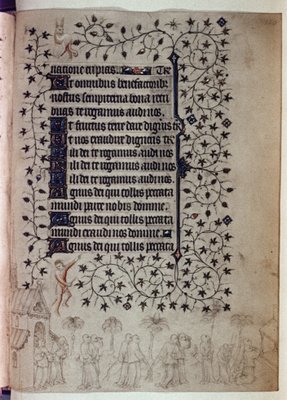 natione eripias. Te
Ut omnibus benefactoribus
nostris sempiterna bona retri
buas te rogamus audi nos.
Ut fructus terre dare digneris te
Ut nos exaudire digneris te
Fili dei te rogamus audi nos.
Fili dei te rogamus audi nos.
Fili dei te rogamus audi nos.
Agnus dei qui tollis peccata
mundi parce nobis domine.
Agnus dei qui tollis peccata
mundi exaudi nos domine.
Agnus dei qui tollis peccata